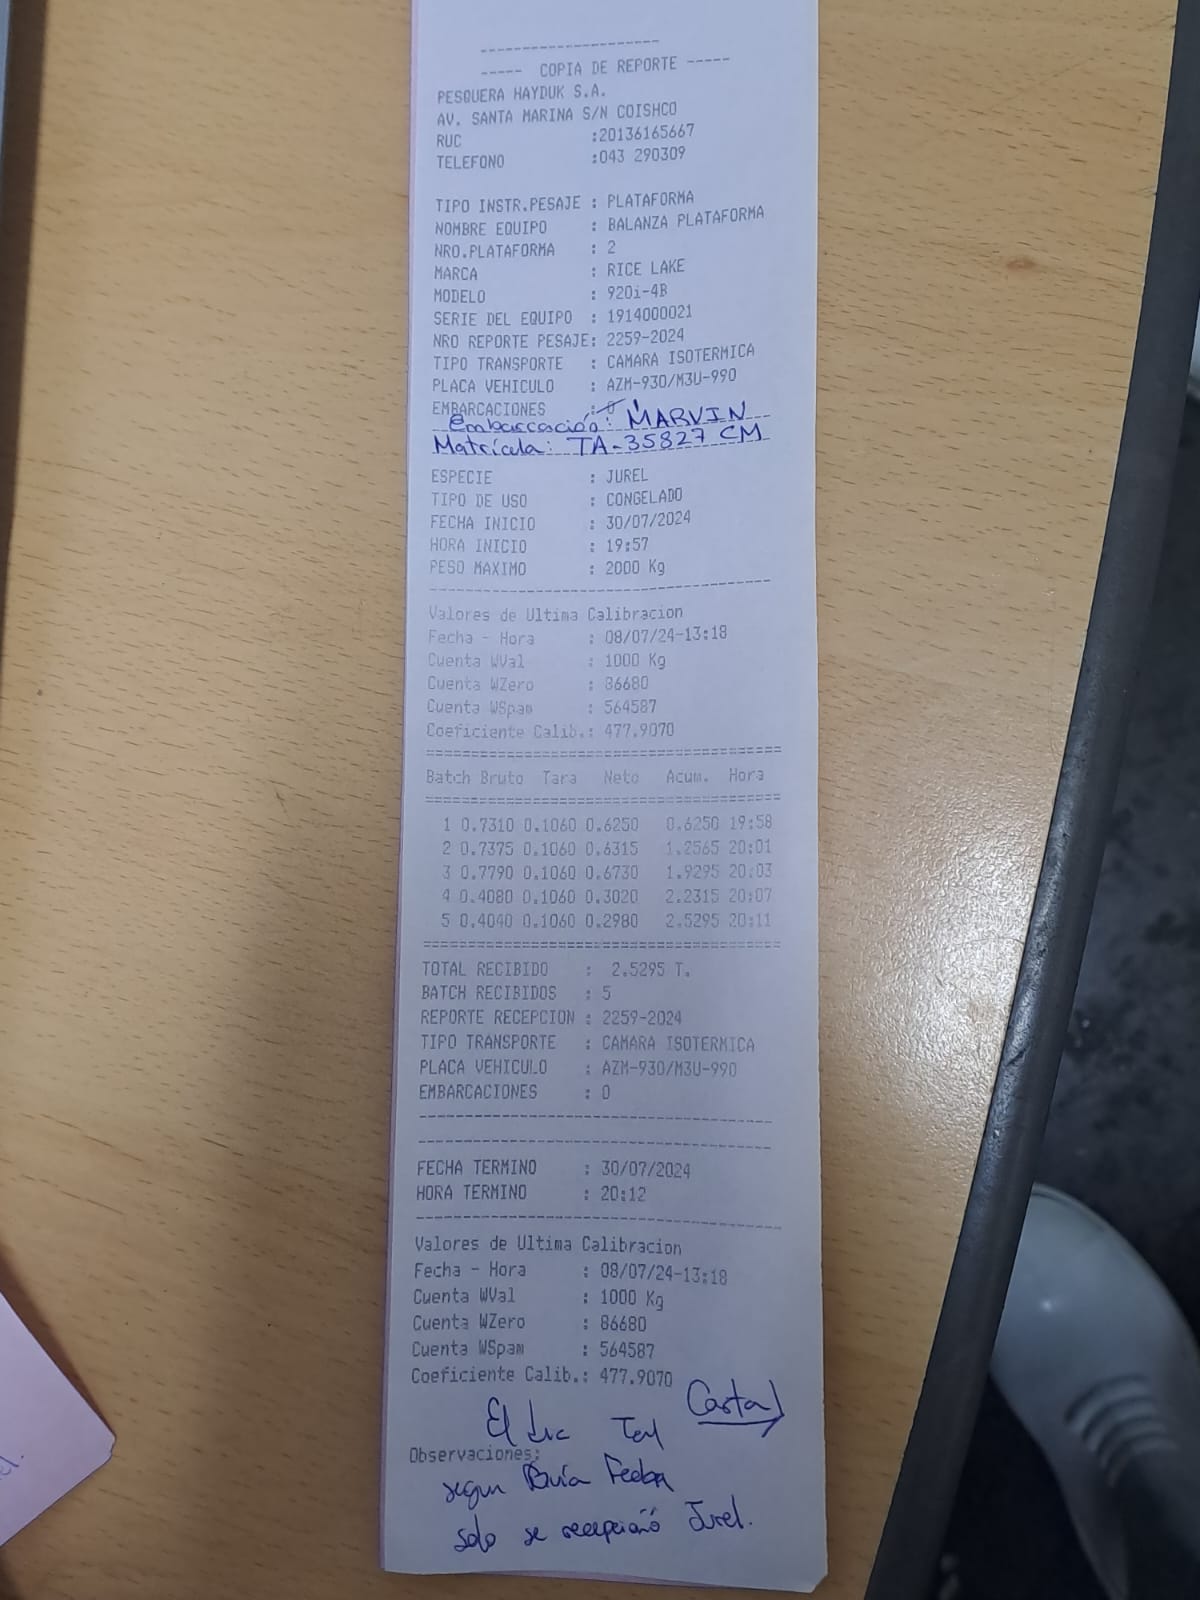 ----- COPIA DE REPORTE -----
PESQUERA HAYDUK S.A.
AV. SANTA MARINA S/N COISHCO
RUC :20136165667
TELEFONO :043 290309
TIPO INSTR.PESAJE : PLATAFORMA
NOMBRE EQUIPO : BALANZA PLATAFORMA
NRO.PLATAFORMA : 2
MARCA : RICE LAKE
MODELO : 920i-4B
SERIE DEL EQUIPO : 1914000021
NRO REPORTE PESAJE: 2259-2024
TIPO TRANSPORTE : CAMARA ISOTERMICA
PLACA VEHICULO : AZM-930/M3U-990
EMBARCACIONES : 0
Embarcación: MARVIN
Matrícula: TA-35827 CM
ESPECIE : JUREL
TIPO DE USO : CONGELADO
FECHA INICIO : 30/07/2024
HORA INICIO : 19:57
PESO MAXIMO : 2000 Kg
Valores de Ultima Calibracion
Fecha - Hora : 08/07/24-13:18
Cuenta WVal : 1000 Kg
Cuenta WZero : 86680
Cuenta WSpam : 564587
Coeficiente Calib.: 477.9070
Batch Bruto Tara Neto Acum. Hora
1 0.7310 0.1060 0.6250 0.6250 19:58
2 0.7375 0.1060 0.6315 1.2565 20:01
3 0.7790 0.1060 0.6730 1.9295 20:03
4 0.4080 0.1060 0.3020 2.2315 20:07
5 0.4040 0.1060 0.2980 2.5295 20:11
TOTAL RECIBIDO : 2.5295 T.
BATCH RECIBIDOS : 5
REPORTE RECEPCION : 2259-2024
TIPO TRANSPORTE : CAMARA ISOTERMICA
PLACA VEHICULO : AZM-930/M3U-990
EMBARCACIONES : 0
FECHA TERMINO : 30/07/2024
HORA TERMINO : 20:12
Valores de Ultima Calibracion
Fecha - Hora : 08/07/24-13:18
Cuenta WVal : 1000 Kg
Cuenta WZero : 86680
Cuenta WSpam : 564587
Coeficiente Calib.: 477.9070
El
Observaciones:
segun Guía
solo se recepcionó Jurel.